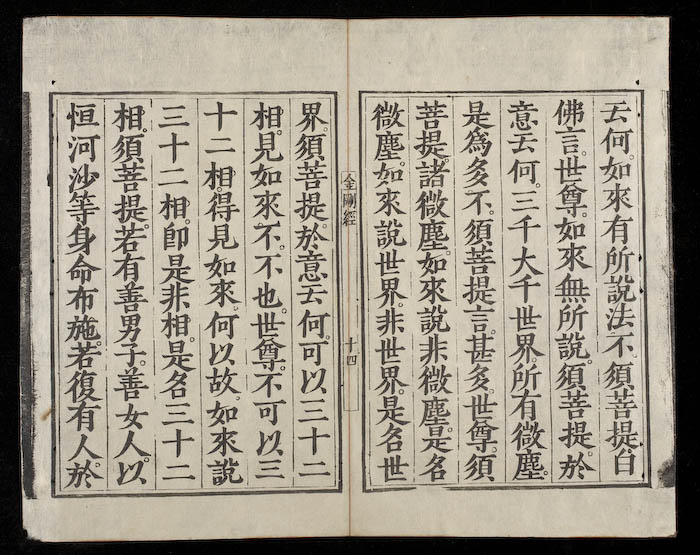 云何。如來有所說法不。須菩提白
佛言。世尊。如來無所說。須菩提。於
意云何。三千大千世界。所有微塵。
是爲多不。須菩提言。甚多。世尊。須
菩提。諸微塵。如來說非微塵。是名
微塵。如來說世界。非世界。是名世
金剛經
十四
界。須菩提。於意云何。可以三十二
相。見如來不。不也。世尊。不可以三
十二相。得見如來。何以故。如來說
三十二相。卽是非相。是名三十二
相。須菩提。若有善男子。善女人。以
恒河沙等身命布施。若復有人。於